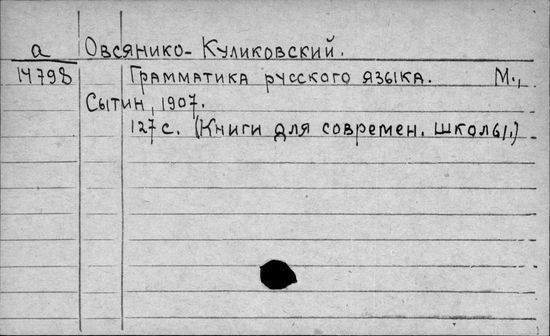 а Овсянико-Куликовский.
14798 Грамматика русского языка. М.,
Сытин, 1907.
127 с. (Книги для современ. школы.)